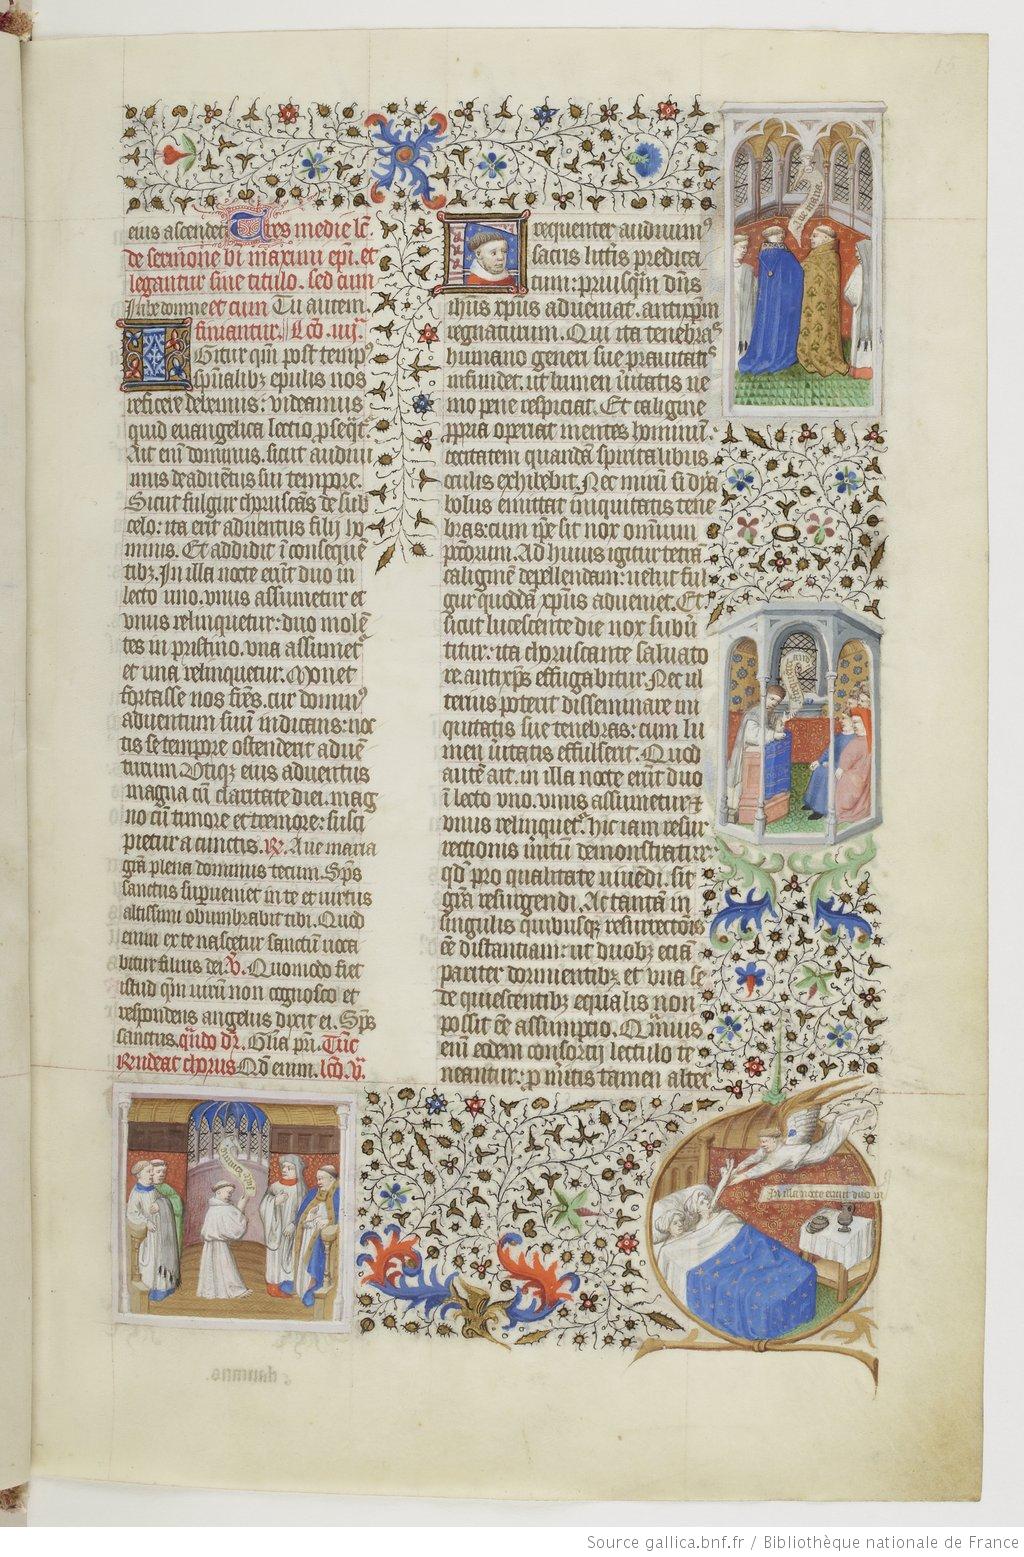 eius ascendet Tres medie lc̄.
de sermone bi maximi epi. et
legantur sine titulo. sed cum
Iube domne et cum Tu autem.
finiantur. Lc̄o. iiij.ᵃ
Igitur qm̄ post tempꝰ
spūalibꝫ epulis nos
reficere debemus: videamus
quid euangelica lectio ꝓseqͭ.
Ait eni dominus. sicut audiui
mus de aduētus sui tempore.
Sicut fulgur choruscās de sub
celo: ita erit aduentus filij ho
minis. Et addidit ī conseque
tibꝫ. In illa nocte erūt duo in
lecto uno. vnus assumetur et
vnus relinquetur: duo molē
tes in pristino. vna assumet᷑
et una relinquetur. Mouet
fortasse nos frēs. cur dominꝰ
aduentum suū indicans: noc
tis se tempore ostenderit aduē
turum Utiqꝫ eius aduentus
magna cū claritate diei. mag
no cū timore et tremore: susci
pietur a cunctis. ℟. Aue maria
grā plena dominus tecum. Sp̄s
sanctus supueniet in te et uirtus
altissimi obumbrabit tibi. Quod
enim ex te nascetur sanctū uoca
bitur filius dei. ℣. Quomodo fiet
istud qm̄ uirū non cognosco et
respondens angelus dixit ei. Sp̄s
sanctus. qn̄do dr̄. Glia pri. Tūc
Rñdeat chorus Qd enim. lc̄o. v̄.
Frequenter audiuimꝰ
sacris litt̄is predica
tum: priusqm̄ dn̄s
ihūs xp̄us adueniat. antixp̄m
regnaturum. Qui ita tenebras
humano generi sue prauitatꝭ
infundet: ut lumen ūitatis ne
mo pene respiciat. Et caligine
ꝓpria operiat mentes hominū.
cecitatem quandā spiritalibus
oculis exhibebit. Nec mirū si dia
bolus emittat iniquitatis tene
bras: cum ip̄e sit nox omnium
pctorum. Ad huius igitur tetrā
caliginē depellendam: uelut ful
gur quoddā xp̄us adueniet. Et
sicut lucescente die nox subui
titur: ita choruscante saluato
re. antixp̄us effugabitur. Nec ul
terius poterit disseminare ini
quitatis sue tenebras: cum lu
men ūitatis effulserit. Quod
autē ait. in illa nocte erūt duo
ī lecto vno. vnus assumetur et
vnus relinquet᷑. hic iam resur
rectionis initiū demonstratur:
qd̄ pro qualitate viuēdi. sit
grā resurgendi. Ac tanta in
singulis quibusqꝫ resurrectoīs
cē distantiam: ut duobꝫ etiā
pariter dormientibꝫ et vna se
de quiescentibꝫ equalis non
possit cē assumptio. Qᵐuis
eni eodem consortij lectulo te
neantur: ꝓ mītis tamen alter
In illa nocte erunt duo in
Source gallica.bnf.fr / Bibliothèque nationale de France